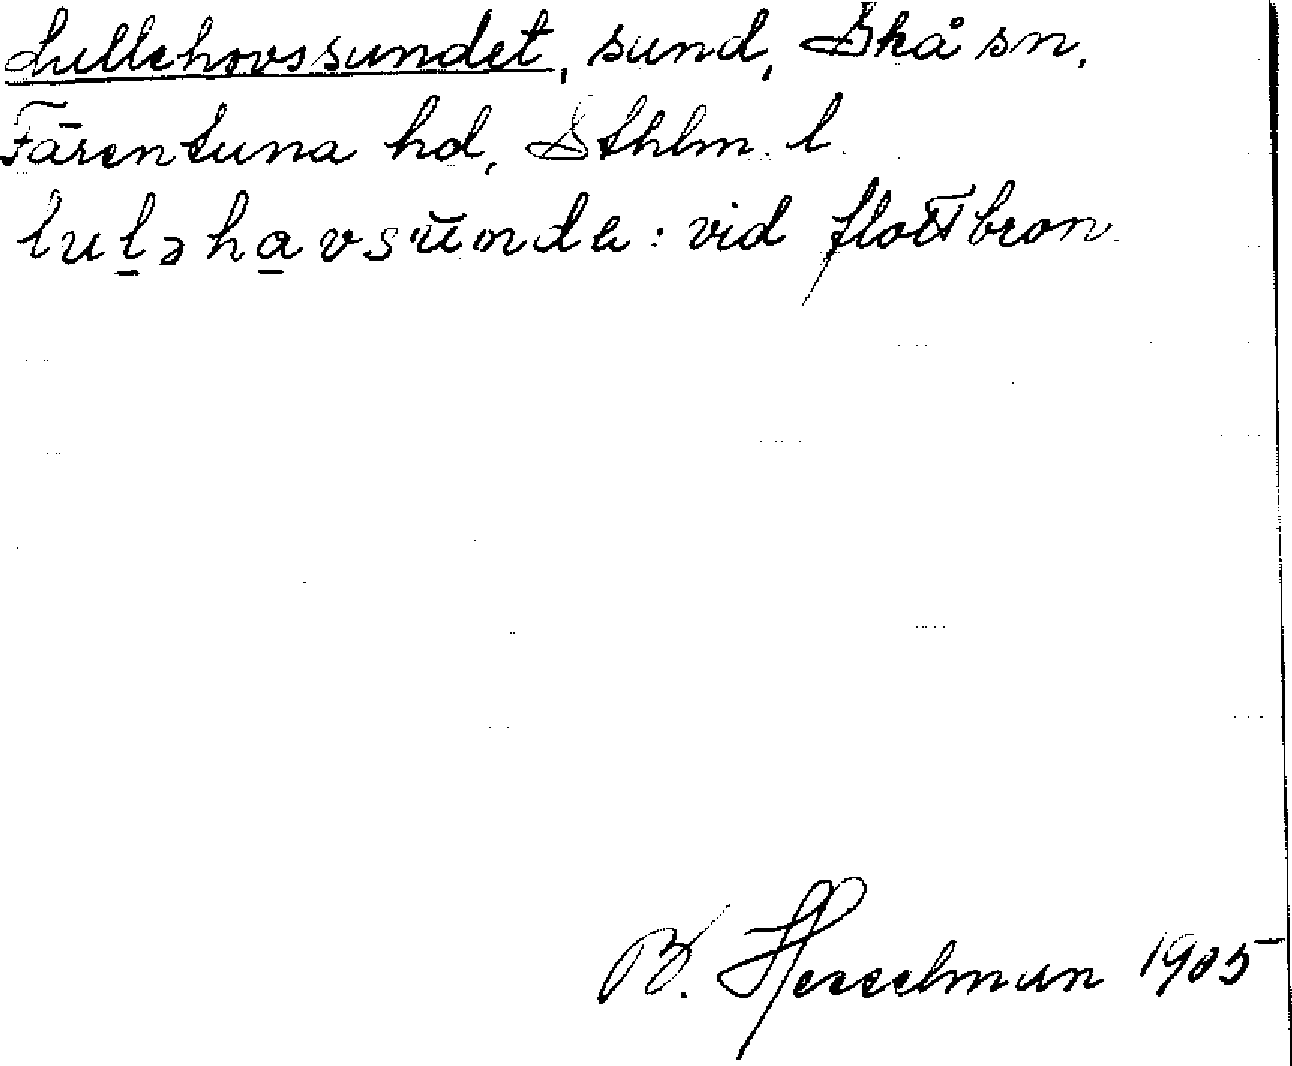 Lullehovssundet, sund, Skå sn,
Färentuna hd, Sthlm. l.
luləhavsunde: vid flottbron.
B. Hesselman 1905